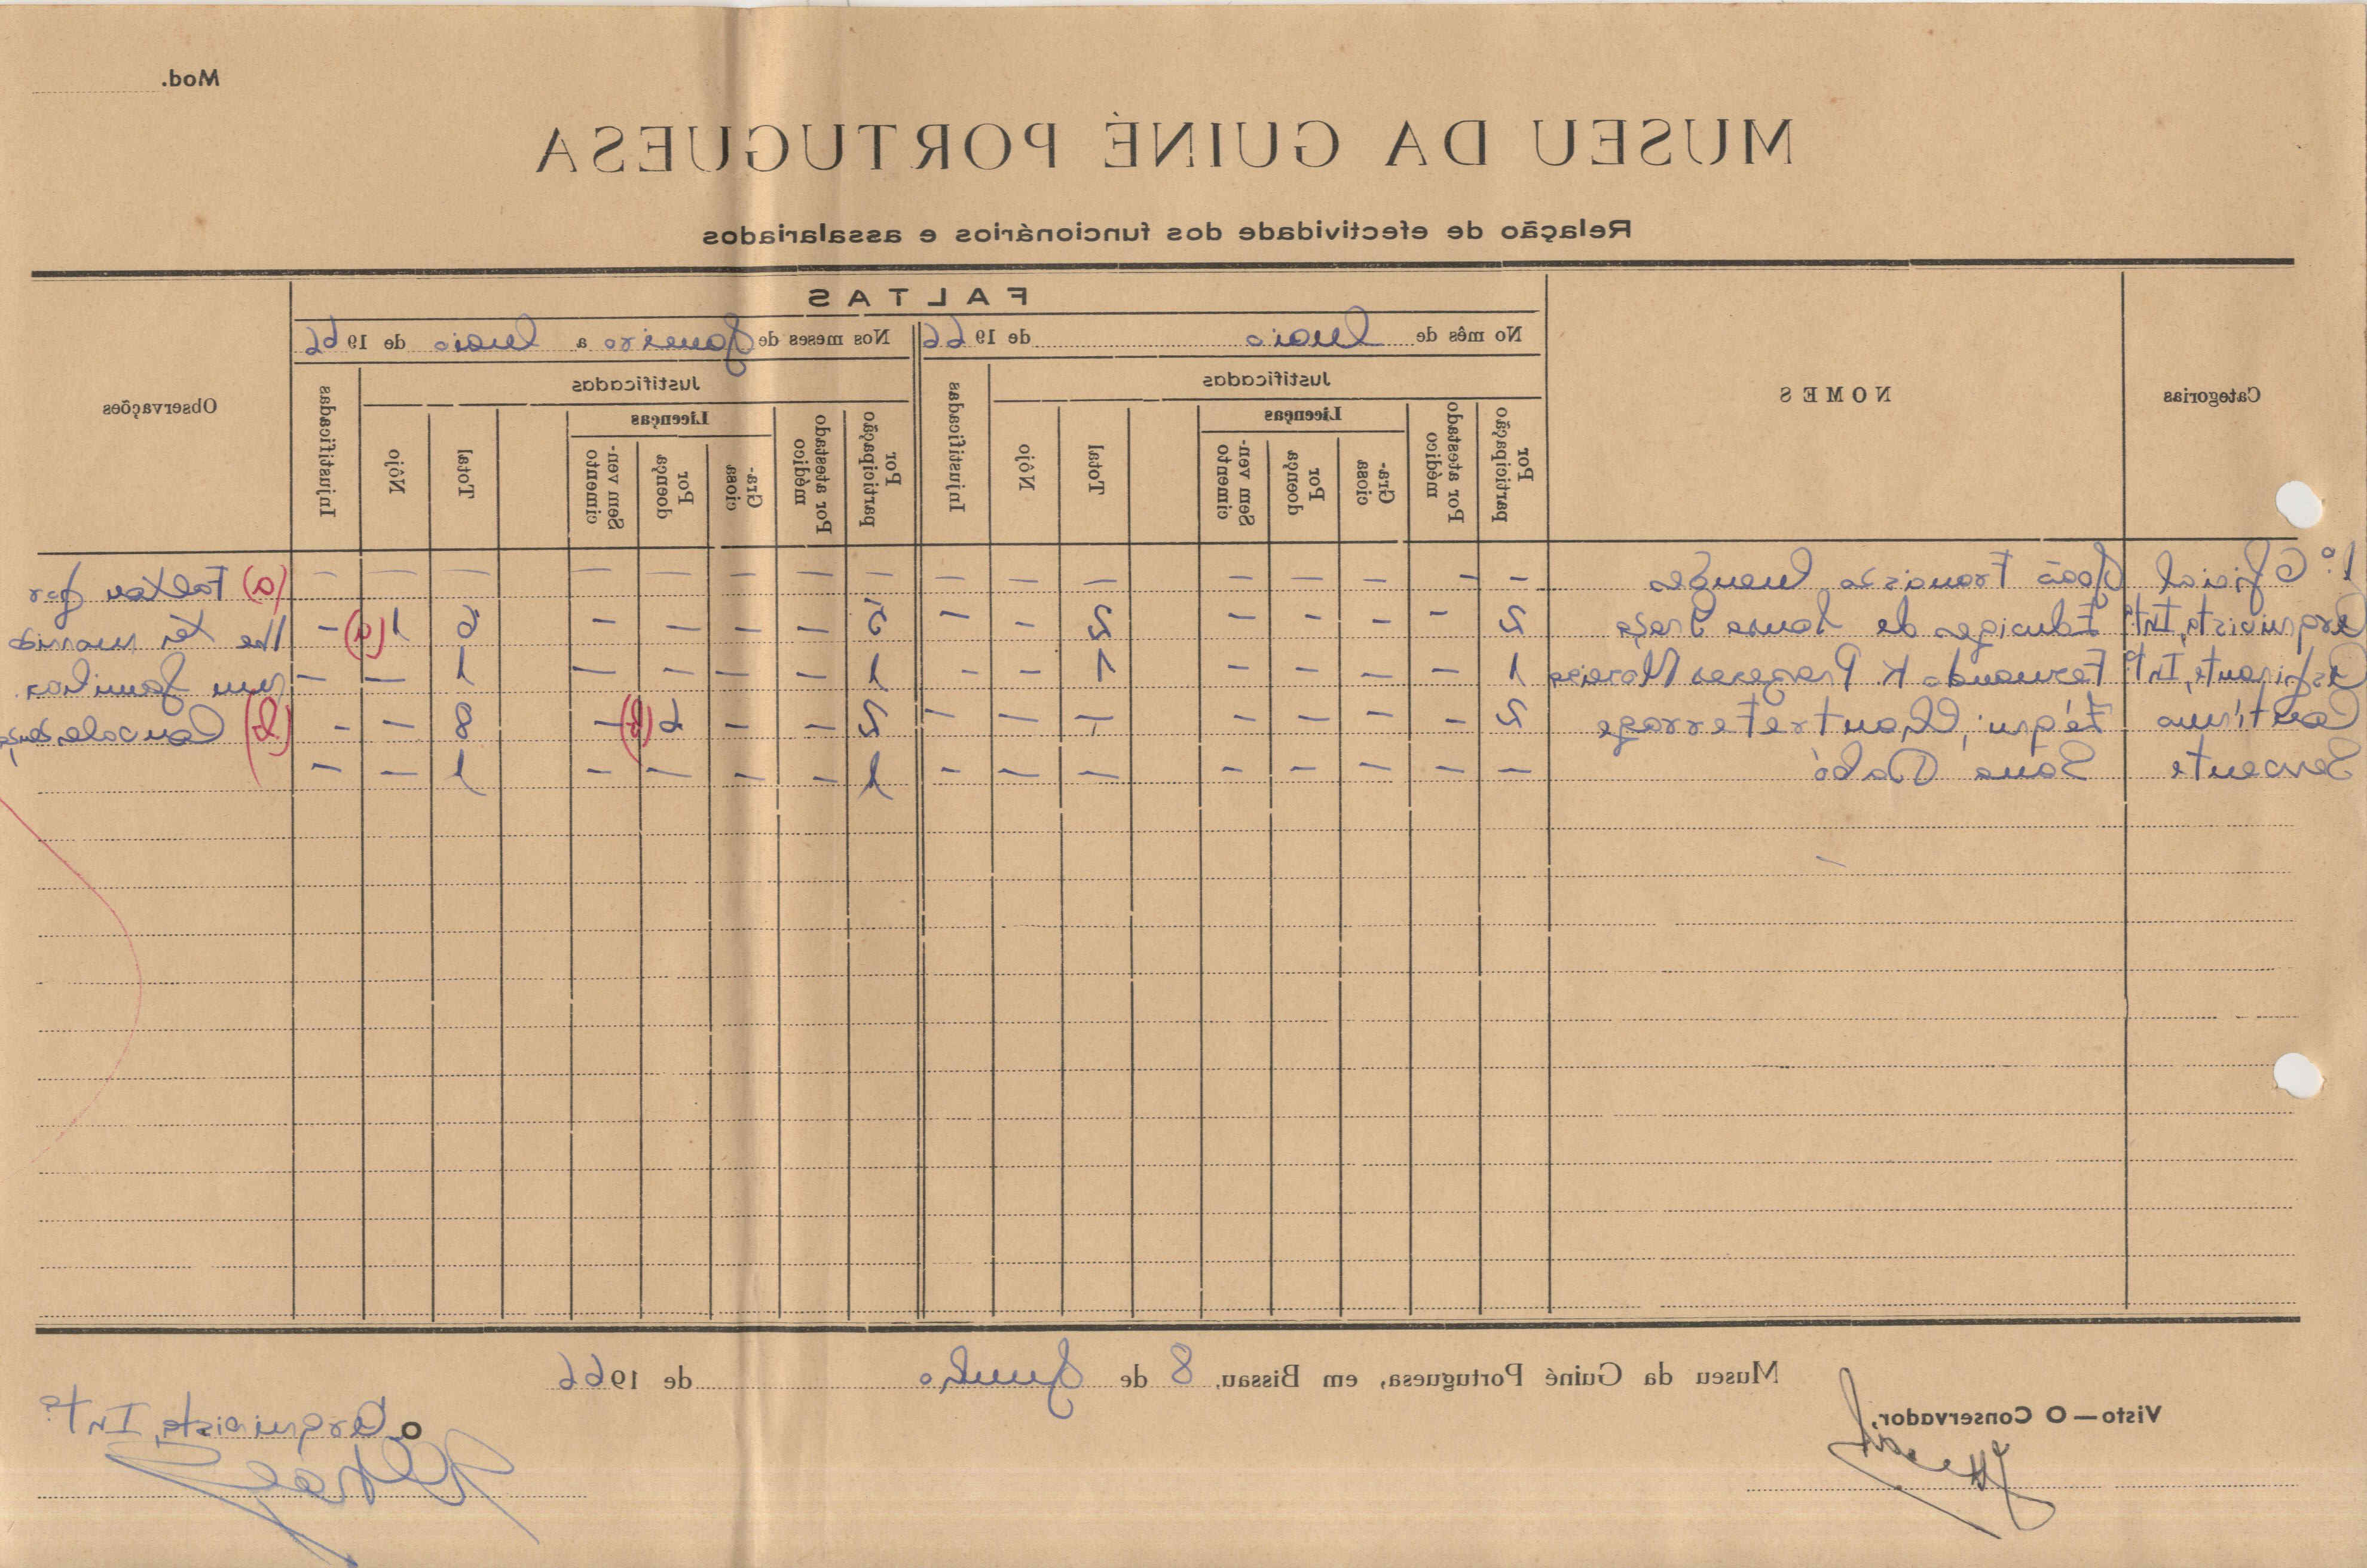 Mod.
MUSEU DA GUINÉ PORTUGUESA
Relação de efectividade dos funcionários e assalariados
Categorias
NOMES
FALTAS
Observações
No mês de Maio de 1966
Nos meses de Janeiro a Maio de 1966
Justificadas
Injustificadas
Justificadas
Injustificadas
Por participação
Por atestado médico
Licenças
Graciosa
Por doença
Sem vencimento
Total
Nôjo
Por participação
Por atestado médico
Licenças
Graciosa
Por doença
Sem vencimento
Total
Nôjo
1.º Oficial João Francisco Mendes — — — — — — — — — — — — — — — — (a) Faltou por
Arquivista, Int.º de Sousa 2 — — — — 2 — — 5 — — — — 6 1(a) — lhe ter morrido
Aspirante, Int.º Fernando K. 1 — — — — 1 — — 1 — — — — 1 — — um familiar.
Contínuo 2 — — — — — — — 2 — — 6(b) — 8 — — (b)
Servente Sana Dabó — — — — — — — — 1 — — — — 1 — —
Museu da Guiné Portuguesa, em Bissau, 8 de Junho de 1966
Visto — O Conservador,
O Arquivista, Int.º